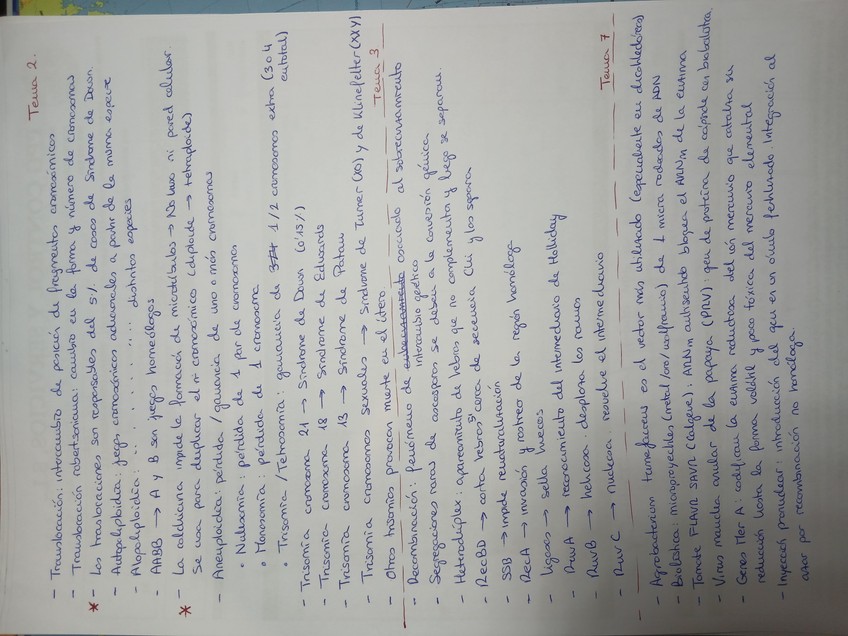 Tema 2.
- Translocación: intercambio de posición de fragmentos cromosómicos
- Translocación robertsoniana: cambio en la forma y número de cromosomas
* - Las traslocaciones son responsables del 5% de casos de Síndrome de Down.
- Autopoliploidía: juegos cromosómicos adicionales a partir de la misma especie
- Alopoliploidía: " . . . . . . " . . distintas especies
- AABB → A y B son juegos homeólogos
* - La colchicina impide la formación de microtúbulos → No huso ni pared celular.
Se usa para duplicar el nº cromosómico (diploide → tetraploide)
- Aneuploidía: pérdida / ganancia de uno o más cromosomas
• Nulisomía: pérdida de 1 par de cromosomas
• Monosomía: pérdida de 1 cromosoma
• Trisomía / Tetrasomía: ganancia de 1/2 cromosomas extra (3 o 4
en total)
- Trisomía cromosoma 21 → Síndrome de Down (0'15%)
- Trisomía cromosoma 18 → Síndrome de Edwards
- Trisomía cromosoma 13 → Síndrome de Patau
- Trisomía cromosomas sexuales → Síndrome de Turner (X0) y de Klinefelter (XXY)
- Otras trisomías provocan muerte en el útero
Tema 3
- Recombinación: fenómeno de asociado al sobrecruzamiento
intercambio genético
- Segregaciones raras de ascosporas se deben a la conversión génica
- Heterodúplex: apareamiento de hebras que no complementan y luego se separan.
- RecBD → corta hebras 5' cerca de secuencia Chi y las separa
- SSB → impide renaturalización
- RecA → invasión y rastreo de la región homóloga
- Ligasas → sella huecos
- RuvA → reconocimiento del intermediario de Holliday
- RuvB → helicasa: desplaza las ramas
- RuvC → nucleasa: resuelve el intermediario
Tema 7
- Agrobacterium tumefaciens es el vector más utilizado (especialmente en dicotiledóneas)
- Biolística: microproyectiles (metal/oro/wolframio) de 1 micra rodeados de ADN
- Tomate FLAVR SAVR (Calgene): ARNm antisentido bloquea el ARNm de la enzima
- Virus mancha anular de la papaya (PRV): gen de proteína de cápside con biobalística.
- Genes Mer A: codifican la enzima reductasa del ión mercurio que cataliza su
reducción hasta la forma volátil y poco tóxica del mercurio elemental
- Inyección pronuclear: introducción del gen en un óvulo fertilizado. Integración al
azar por recombinación no homóloga.